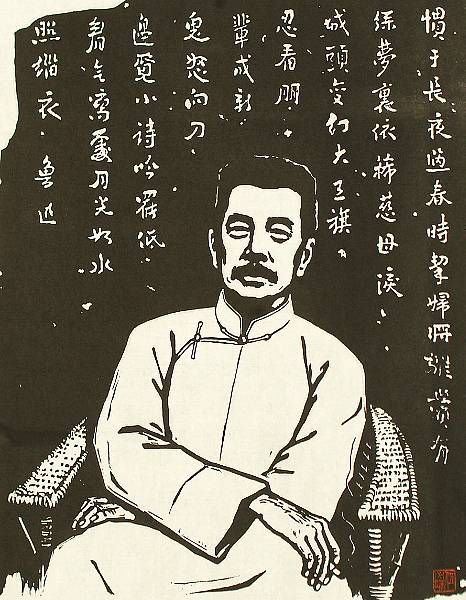 慣于長夜過春時挈婦將雛鬢有
絲夢裏依稀慈母淚
城頭變幻大王旗
忍看朋
輩成新
鬼怒向刀
邊覓小詩吟罷低
眉無寫處月光如水
照緇衣 魯迅